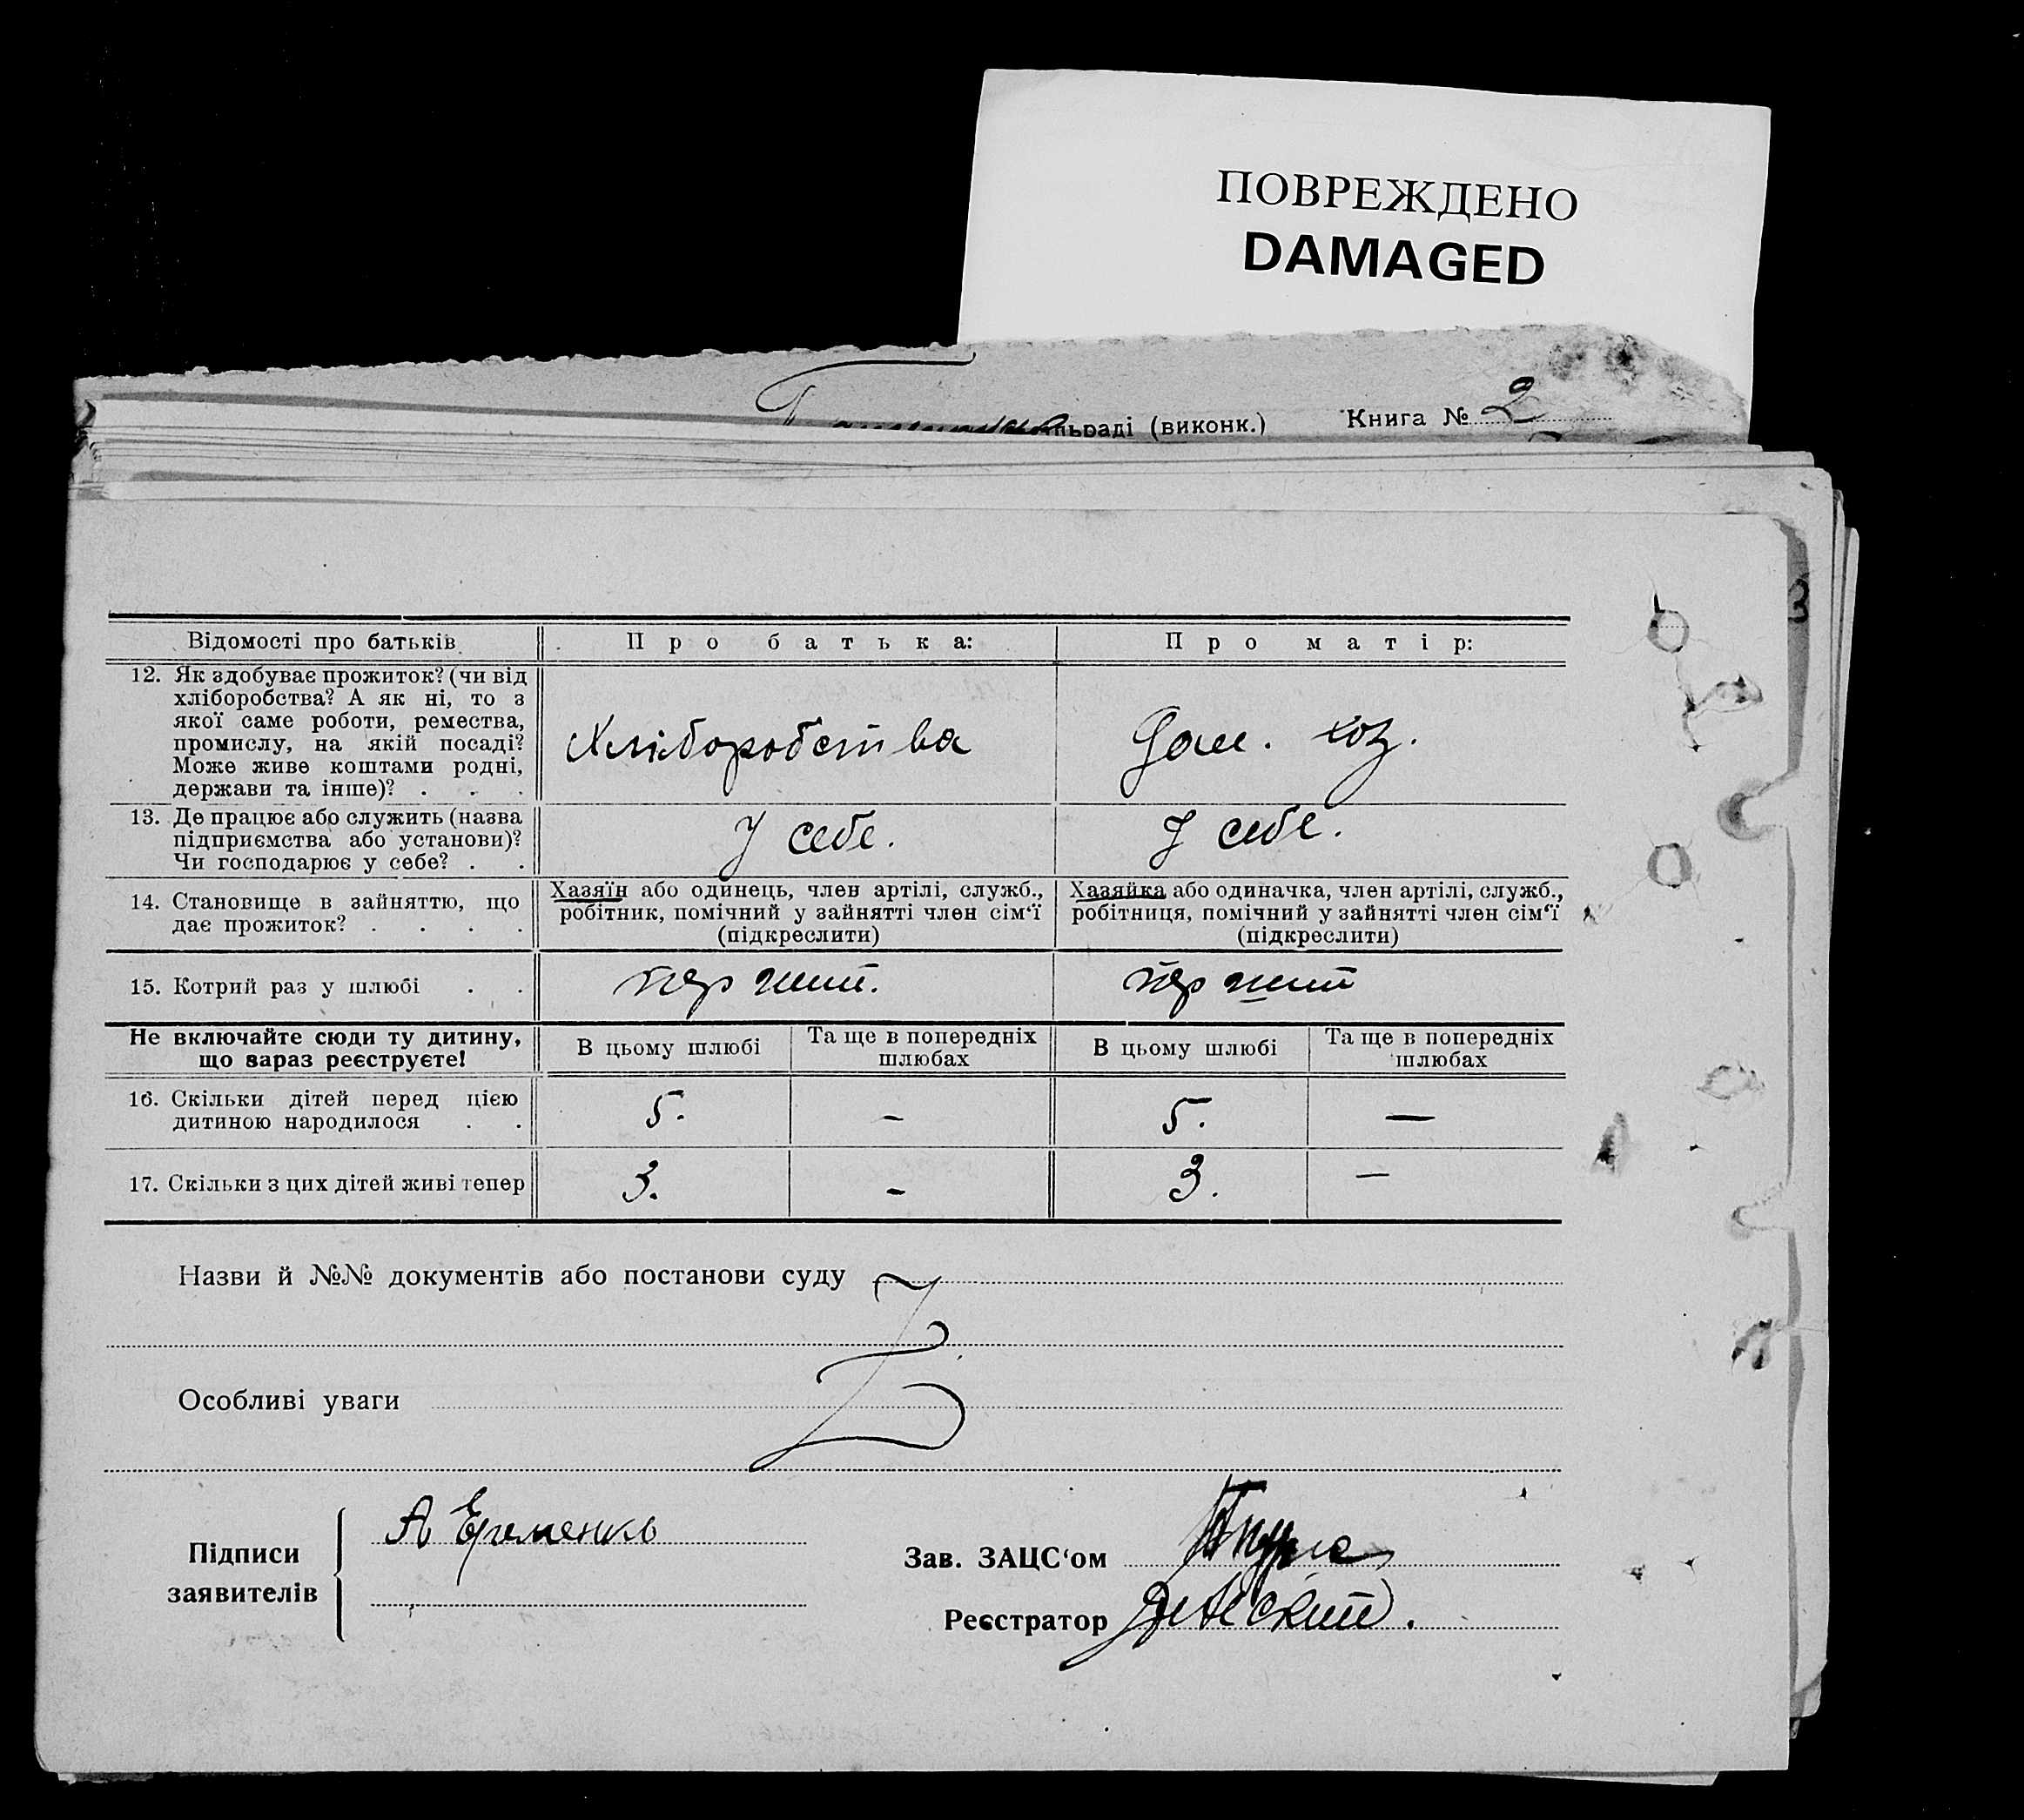 ПОВРЕЖДЕНО
DAMAGED
льраді (виконк.) Книга № 2
3
Відомості про батьків Про батька: Про матір:
12. Як здобуває прожиток? (чи від
хліборобства? А як ні, то з
якої саме роботи, ремества,
промислу, на якій посаді?
Може живе коштами родні,
держави та інше)? . . .
Хліборобства Дом. хоз.
13. Де працює або служить (назва
підприємства або установи)?
Чи господарює у себе? . .
У себе. У себе.
14. Становище в зайняттю, що
дає прожиток? . . . .
Хазяїн або одинець, член артілі, служб.,
робітник, помічний у зайнятті член сім‘ї
(підкреслити)
Хазяйка або одиначка, член артілі, служб.,
робітниця, помічний у зайнятті член сім‘ї
(підкреслити)
15. Котрий раз у шлюбі . . перший. перший
Не включайте сюди ту дитину,
що зараз реєструєте!
В цьому шлюбі Та ще в попередніх
шлюбах
В цьому шлюбі Та ще в попередніх
шлюбах
16. Скільки дітей перед цією
дитиною народилося . .
5. – 5. —
17. Скільки з цих дітей живі тепер 3. – 3. —
Назви й №№ документів або постанови суду
Особливі уваги
Підписи
заявителів
А Єременко
Зав. ЗАЦС‘ом
Реєстратор